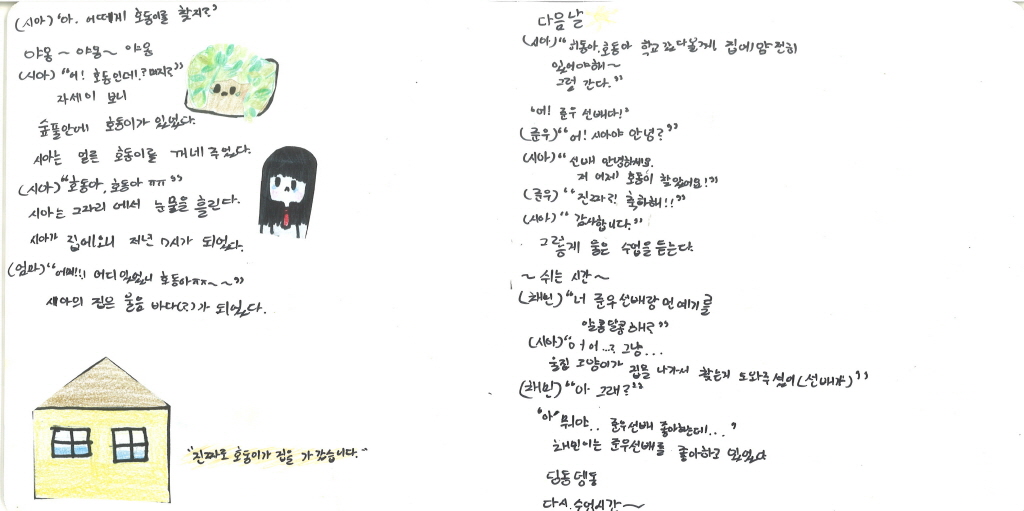 (시아) '아. 어떻게 호동이를 찾지?'
야옹~ 야옹~ 야옹
(시아) "어! 호동인데!? 뭐지?"
자세히 보니
숲풀안에 호동이가 있었다.
시아는 얼른 호동이를 꺼네주었다.
(시아) "호동아, 호동아 ㅠㅠ"
시아는 그자리에서 눈물을 흘린다.
시아가 집에오니 저년 7시가 되었다.
(엄마) "어머!! 어디있었니 호동아ㅠㅠ~~"
세아의 집은 울음 바다(?)가 되었다.
"진짜로 호동이가 집을 나갔습니다."
다음날
(시아) "호동아, 호동아 학교 갔다올게 집에 얌전히
있어야해~
그럼 간다."
"어! 준우 선배다!"
(준우) "어! 시아야 안녕?"
(시아) "선배 안녕하세요.
저 어제 호동이 찾았어요!"
(준우) "진짜?! 축하해!!"
(시아) "감사합니다."
그렇게 둘은 수업을 듣는다.
~ 쉬는 시간 ~
(채민) "너 준우선배랑 먼 예기를
알콩달콩해?"
(시아) "어어...? 그냥...
울집 고양이가 집을 나가서 찾는거 도와주셨어 (선배가)"
(채민) "아 그래?"
"아" 뭐야.. 준우선배 좋아하는데...'
채민이는 준우선배를 좋아하고 있었다
딩동뎅동
다시. 수업시간~